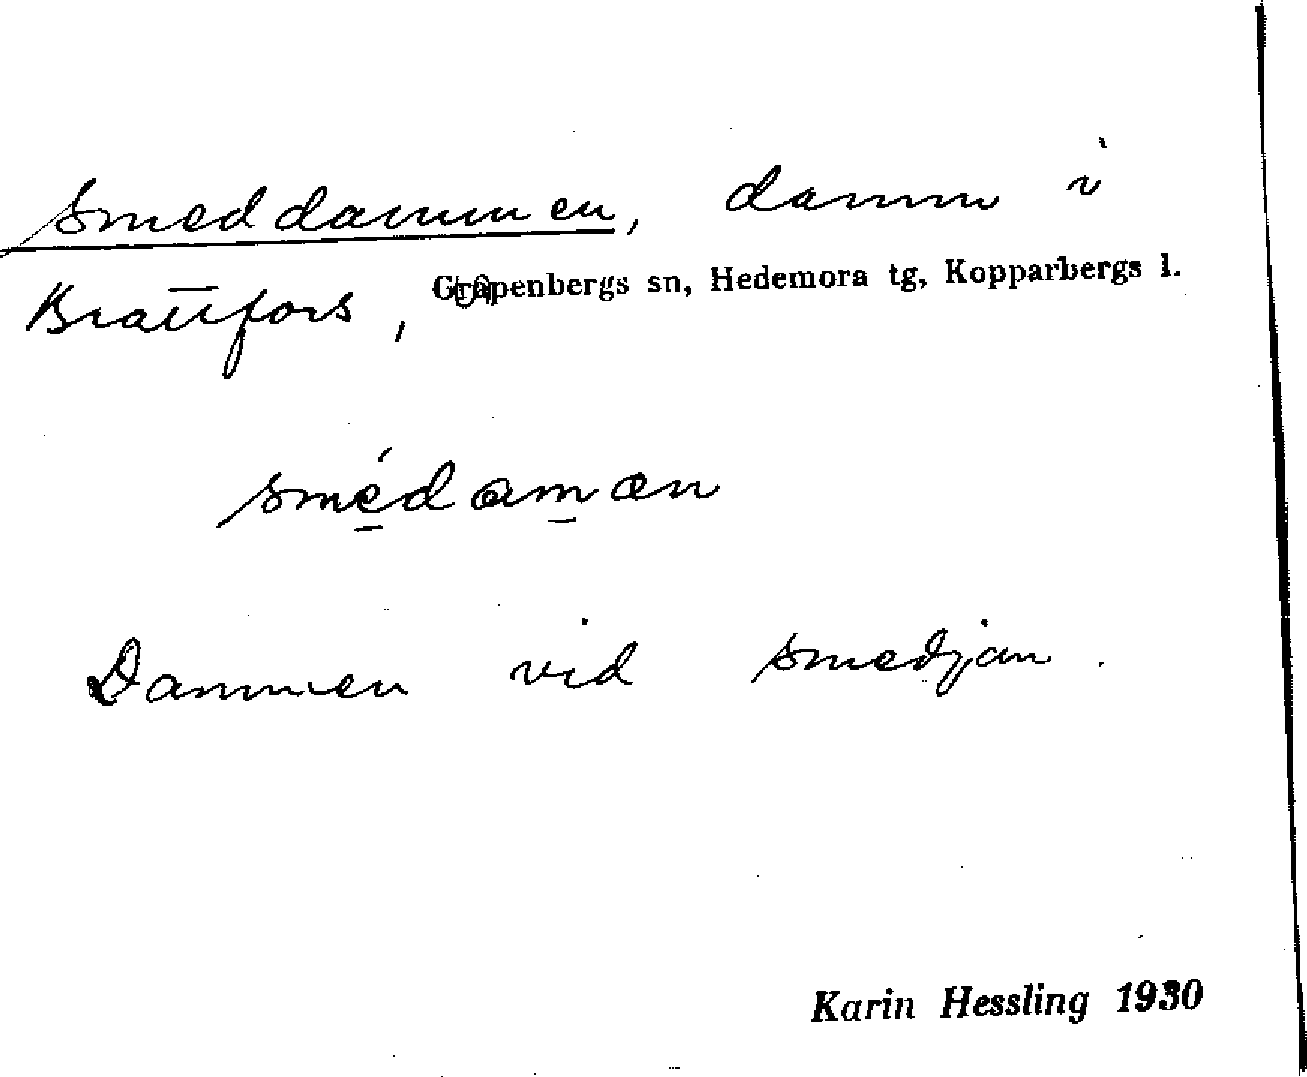 Smeddammen, damm i
Brattfors, Gråpenbergs sn, Hedemora tg, Kopparbergs l.
smédaman
Dammen vid smedjan.
Karin Hessling 1930